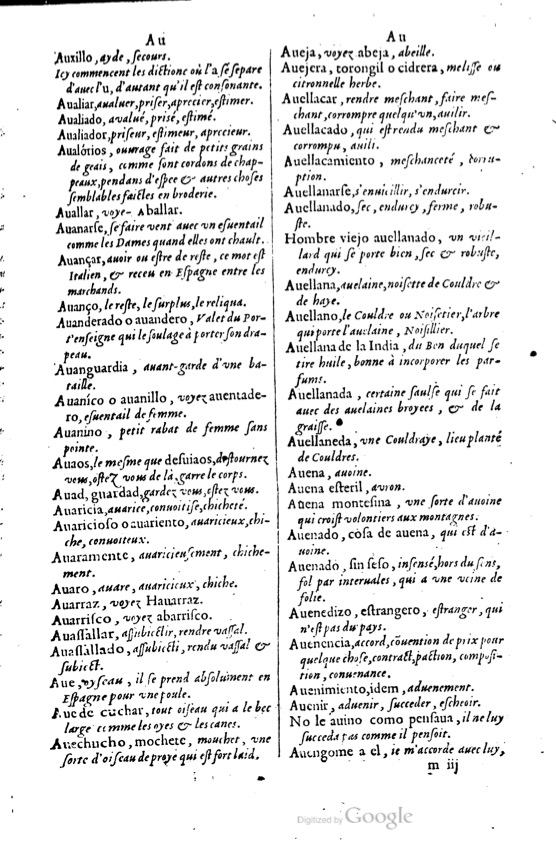 Au
Auxillo, ayde, secours.
Icy commencent les dictions où l'a se separe
d'auec l'u, d'autant qu'il est consonante.
Aualiar, aualuer, priser, aprecier, estimer.
Aualiado, avalué, prisé, estimé.
Aualiador, priseur, estimeur, aprecieur.
Aualórios, ouurage fait de petits grains
de geais, comme sont cordons de chap-
peaux, pendans d'espee & autres choses
semblables faictes en broderie.
Auallar, voye- Aballar.
Auanarse, se faire vent auec vn esuentail
comme les Dames quand elles ont chault.
Auançar, auoir ou estre de reste, ce mot est
Italien, & receu en Espagne entre les
marchands.
Auanço, le reste, le surplus, le reliqua.
Auanderado o auandero, Valet du Por-
t'enseigne qui le soulage à porter son dra-
peau.
Auanguardia, auant-garde d'vne ba-
taille.
Auaníco o auanillo, voyez auentade-
ro, esuentail de femme.
Auanino, petit rabat de femme sans
pointe.
Auaos, le mesme que desuiaos, destournez
vous, ostez vous de là, garre le corps.
Auad, guardad, gardez vous, ostez vous.
Auaricia, auarice, conuoitise, chicheté.
Auaricioso o auariento, auaricieux, chi-
che, conuoiteux.
Auaramente, auaricieusement, chiche-
ment.
Auaro, auare, auaricieux, chiche.
Auarraz, voyez Hauarraz.
Auarrisco, voyez abarrisco.
Auassallar, assubiectir, rendre vassal.
Auassallado, assubiecti, rendu vassal &
subiect.
Aue, oyseau, il se prend absolument en
Espagne pour vne poule.
Aue de cuchar, tout oiseau qui a le bec
large comme les oyes & les canes.
Auechucho, mochete, mouchet, vne
sorte d'oiseau de proye qui est fort laid.
Au
Aueja, voyez abeja, abeille.
Auejera, torongil o cidrera, melisse ou
citronnelle herbe.
Auellacar, rendre meschant, faire mes-
chant, corrompre quelqu'vn, auilir.
Auellacado, qui est rendu meschant &
corrompu, auili.
Auellacamiento, meschanceté, corru-
ption.
Auellanarse, s'enuieillir, s'endurcir.
Auellanado, sec, endurcy, ferme, robu-
ste.
Hombre viejo auellanado, vn vieil-
lard qui se porte bien, sec & robuste,
endurcy.
Auellana, auelaine, noisette de Couldre &
de haye.
Auellano, le Couldre ou Noisetier, l'arbre
qui porte l'auelaine, Noisillier.
Auellana de la India, du Ben duquel se
tire huile, bonne à incorporer les par-
fums.
Auellanada, certaine saulse qui se fait
auec des auelaines broyees, & de la
graisse.
Auellaneda, vne Couldraye, lieu planté
de Couldres.
Auena, auoine.
Auena esteril, auron.
Auena montesina, vne sorte d'auoine
qui croist volontiers aux montagnes.
Auenado, cosa de auena, qui est d'a-
uoine.
Auenado, sin seso, insensé, hors du sens,
fol par interuales, qui a vne veine de
folie.
Auenedizo, estrangero, estranger, qui
n'est pas du pays.
Auenencia, accord, cõuention de prix pour
quelque chose, contract, paction, composi-
tion, conuenance.
Auenimiento, idem, aduenement.
Auenir, aduenir, succeder, escheoir.
No le auino como pensaua, il ne luy
succeda pas comme il pensoit.
Auengome a el, ie m'accorde auec luy,
m iij
Digitized by Google